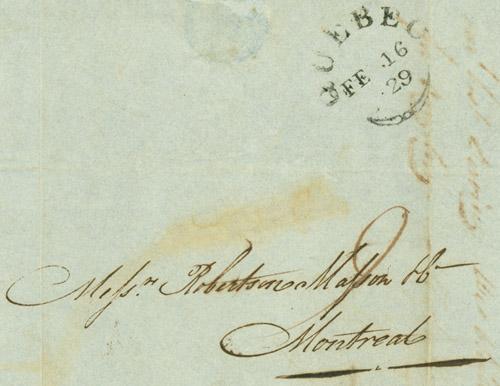 QUEBEC
FE 16
29
9
Messrs. Robertson Masson & Co
Montreal